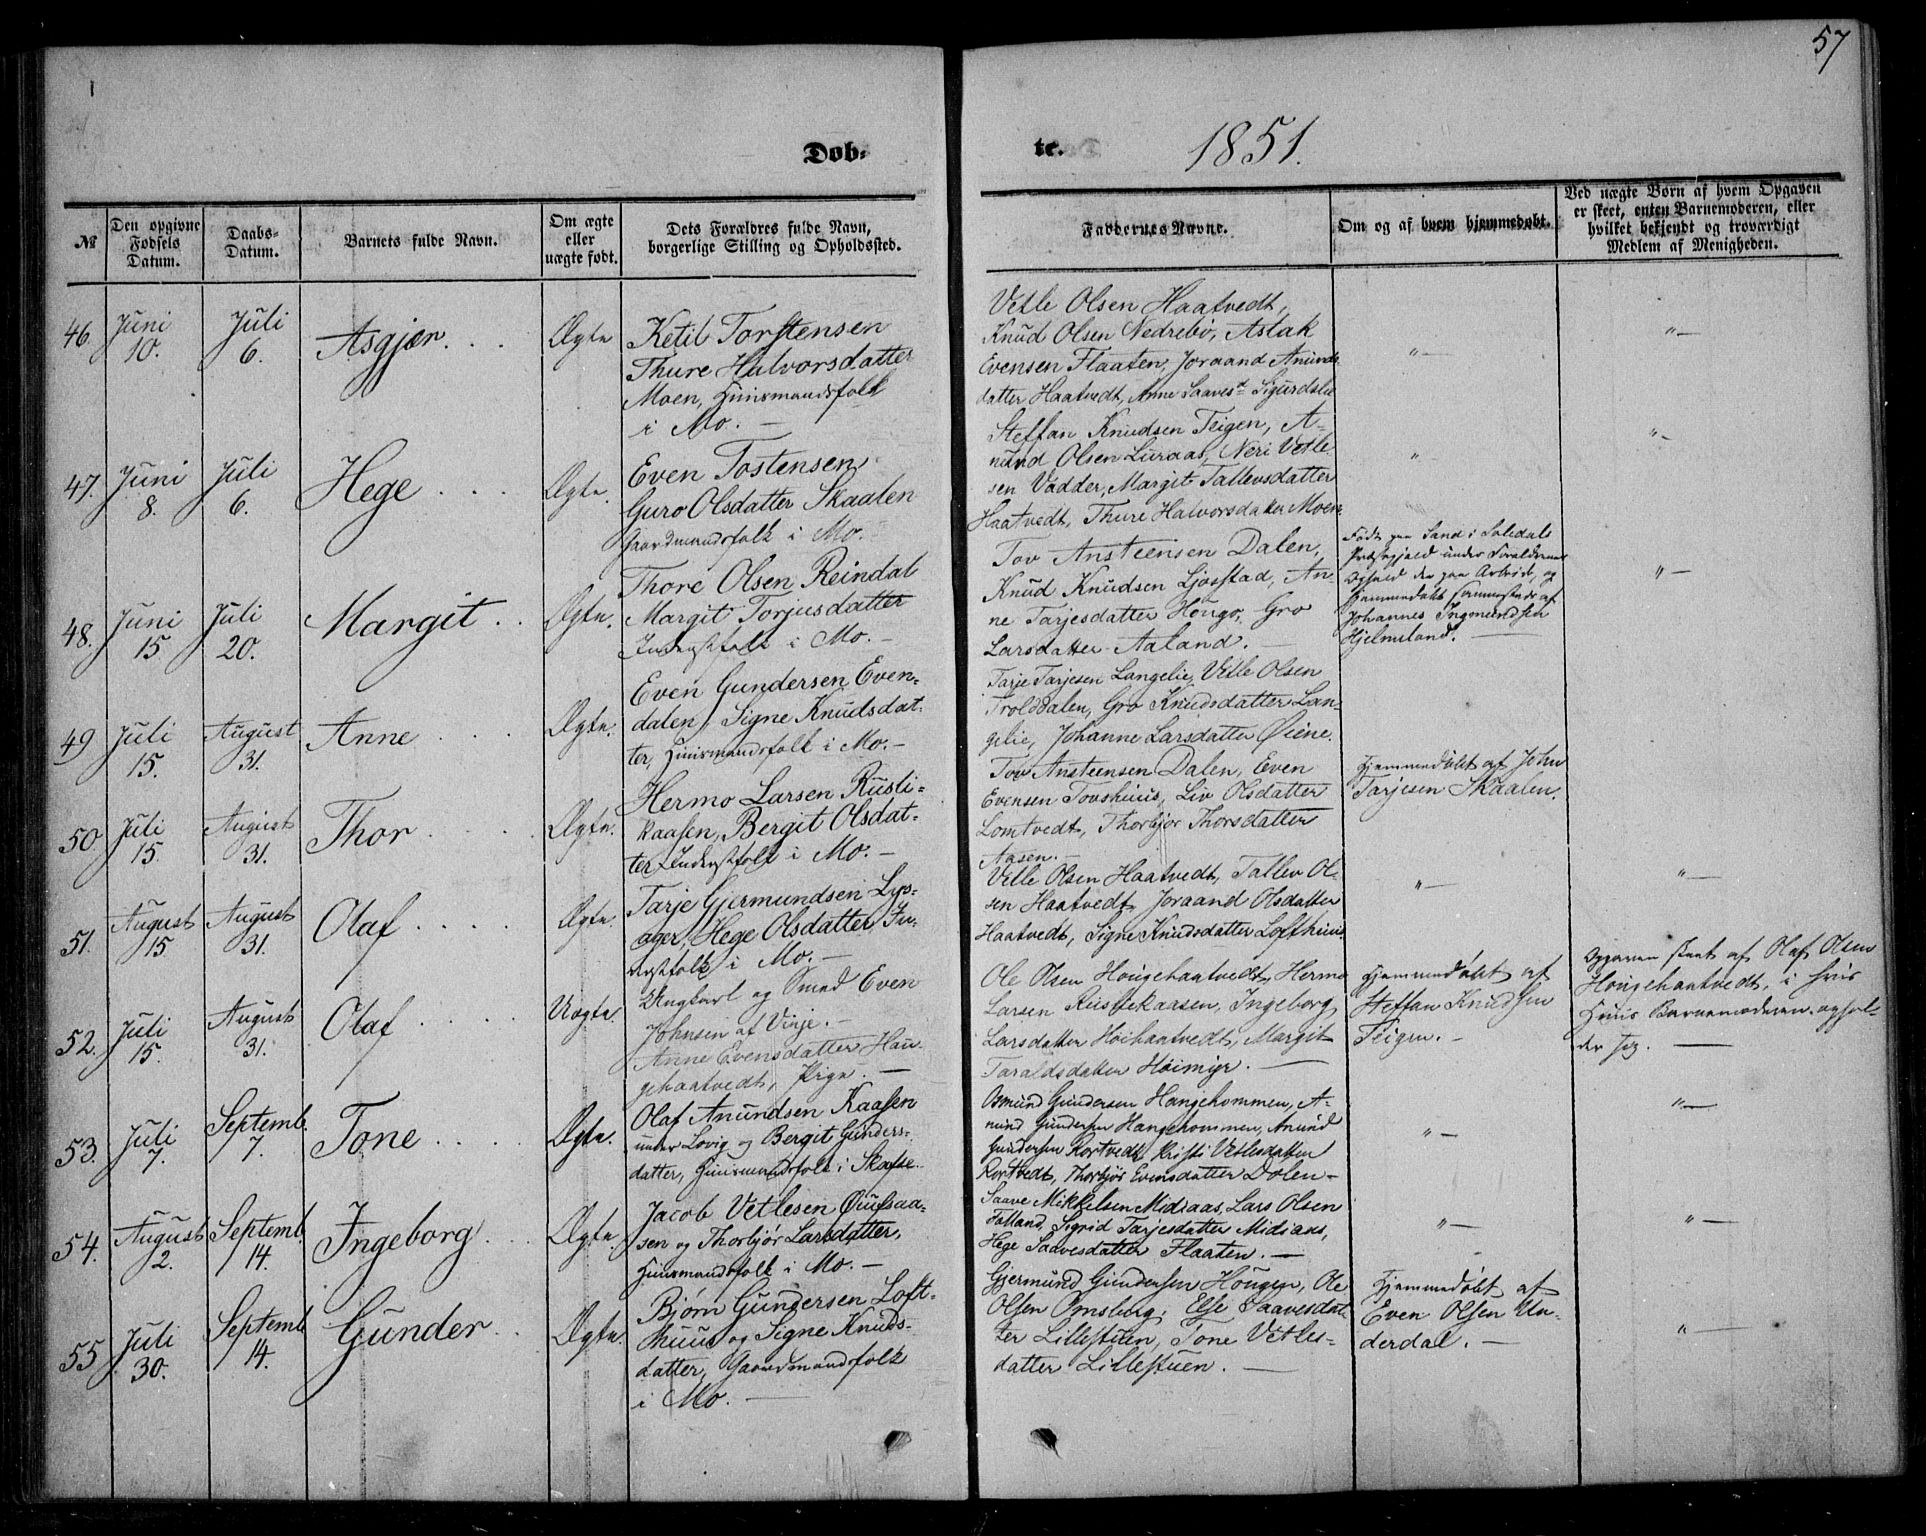 57
Døb-
te.
1851.
№
Den opgivne
Fødsels
Datum.
Daabs-
Datum.
Barnets fulde Navn.
Om ægte
eller
uægte født.
Dets Forældres fulde Navn,
borgerlige Stilling og Opholdssted.
Faddernes Navne.
Om og af hvem hjemmedøbt.
Ved uægte Børn af hvem Opgaven
er skeet, enten Barnemoderen, eller
hvilket bekjendt og troværdigt
Medlem af Menigheden.
46.
Juni
10.
Juli
6.
Asgjær
Ægte
Ketil Torstensen
Thure Halvorsdatter
Moen, Huusmandsfolk
i Mo. —
Vetle Olsen Haatvedt,
Knud Olsen Nedrebø, Aslak
Evensen Flaaten, Joraand Anunds
datter Haatvedt, Anne Saavesd. Sigurdsli
" —
" —
47.
Juni
8.
Juli
6.
Hege
Ægte.
Even Tostensen
Guro Olsdatter Skaalen
Gaardmandsfolk i Mo.
Steffan Knudsen Teigen, A-
nund Olsen Luraas, Neri Vetle-
sen Vadder, Margit Tallevsdatter
Haatvedt, Thure Halvorsdatter Moen.
" —
" —
48.
Juni
15.
Juli
20.
Margit
Ægte.
Thore Olsen Reindal
Margit Torjusdatter
Inderstfolk i Mo. —
Tov Ansteensen Dalen,
Knud Knudsen Ljosstad, An-
ne Tarjesdatter Hougo, Gro
Larsdatter Aaland. —
Født paa Sand i Suledals
Præstegjeld under Forældrenes
Ophold der paa Arbeide, og
hjemmedøbt sammesteds af
Johannes Ingemundsen
Hjelmeland. —
" —
49
Juli
15.
August
31.
Anne
Ægte.
Even Gundersen Even-
dalen, Signe Knudsdat-
ter, Huusmandsfolk i Mo. —
Tarje Tarjesen Langelie, Vetle Olsen
Trolddalen, Gro Knudsdatter Lan-
gelie, Johanne Larsdatter Øiene.
50.
Juli
15.
August
31.
Thor
Ægte.
Hermo Larsen Rusli-
kaasen, Bergit Olsdat-
ter Inderstfolk i Mo. —
Tov Ansteensen Dalen, Even
Evensen Tovshuus, Liv Olsdatter
Lomtvedt, Thorbjør Thorsdatter
Aasen. —
Hjemmedøbt af John
Tarjesen Skaalen.
51.
August
15
August
31.
Olaf
Ægte.
Tarje Gjermundsen Lys-
ager, Hege Olsdatter In-
derstfolk i Mo. —
Vetle Olsen Haatvedt, Tallev Ol-
sen Haatvedt, Joraand Olsdatter
Haatvedt, Signe Knudsdatter Lofthuus
" —
" —
52.
Juli
15.
August
31.
Olaf
Uægte.
Ungkarl og Smed Even
Johnsen af Vinje. —
Anne Evensdatter Hau-
gehaatvedt, Pige. —
Ole Olsen Hougehaatvedt, Hermo
Larsen Ruslikaasen, Ingeborg
Larsdatter Høihaatvedt, Margit
Taraldsdatter Høimyr. —
Hjemmedøbt af
Steffan Knudsen
Teigen. —
Opgaven skeet af Olaf Olsen
Hougehaatvedt, i hvis
Huus Barnemoderen ophol-
der sig. —
53.
Juli
7.
Septemb.
7.
Tone
Ægte.
Olaf Anundsen Kaasen
under Lovig og Bergit Gunders-
datter, Huusmandsfolk i Skafse.
Osmund Gundersen Haugehommen, A-
nund Gundersen Haugehommen, Anund
Gundersen Rortvedt, Kristi Vetlesdatter
Rortvedt, Thorbjør Evensdatter Dolen —
" —
" —
54.
August
2.
Septemb.
14.
Ingeborg
Ægte.
Jacob Vetlesen Øiufsaa-
sen og Thorbjør Larsdatter,
Huusmandsfolk i Mo. —
Saave Mikkelsen Midiaas, Lars Olsen
Felland, Sigrid Tarjesdatter Midiaas,
Hege Saavesdatter Flaaten. —
" —
" —
55
Juli
30.
Septemb.
14.
Gunder
Ægte.
Bjørn Gundersen Loft-
huus og Signe Knuds-
datter, Gaardmandsfolk
i Mo. —
Gjermund Gundersen Hougen, Ole
Olsen Ornsberg, Else Saavesdat-
ter Lillestuen, Tone Vetles-
datter Lillestuen. —
Hjemmedøbt af
Even Olsen Un-
derdal. —
" —